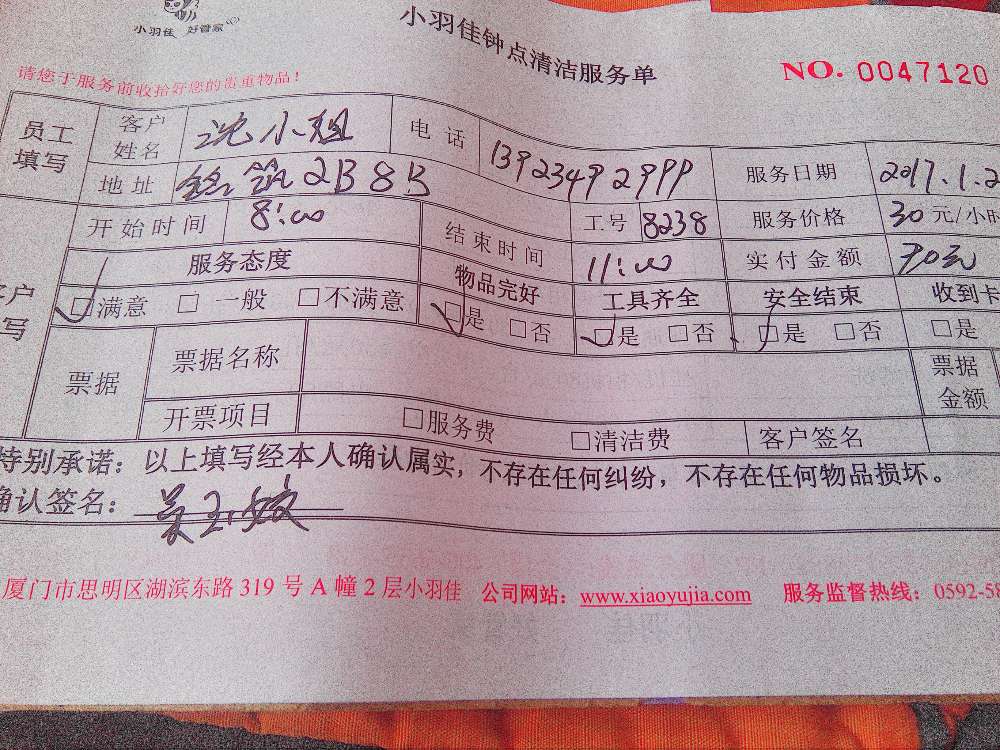 小羽佳 好管家
小羽佳钟点清洁服务单
NO. 0047120
请您于服务前收拾好您的贵重物品！
员工填写 客户姓名 沈小姐 电话 13923492999 服务日期 2017.1.2
地址 2B8B 工号 8238 服务价格 30元/小时
开始时间 8:00 结束时间 11:00 实付金额 90元
服务态度 物品完好 工具齐全 安全结束 收到卡
□满意 □一般 □不满意 □是 □否 □是 □否 □是 □否 □是
票据 票据名称 票据金额
开票项目 □服务费 □清洁费 客户签名
特别承诺：以上填写经本人确认属实，不存在任何纠纷，不存在任何物品损坏。
确认签名：
厦门市思明区湖滨东路 319 号 A 幢 2 层小羽佳 公司网站：www.xiaoyujia.com 服务监督热线：0592-58